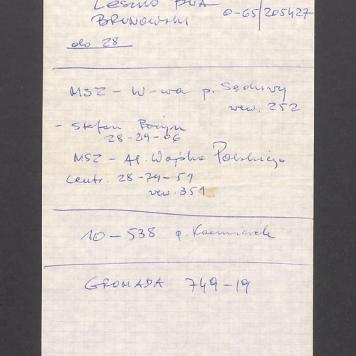 Leszno
BRUNOWSKI 0-65/205427
do 28
MSZ - W-wa p. Sędziwy
wew. 252
- Stefan
28-29-06
MSZ - Al. Wojska Polskiego
Centr. 28-79-51
wew. 351
10-538 p. Kaczmarek
GROMADA 749-19